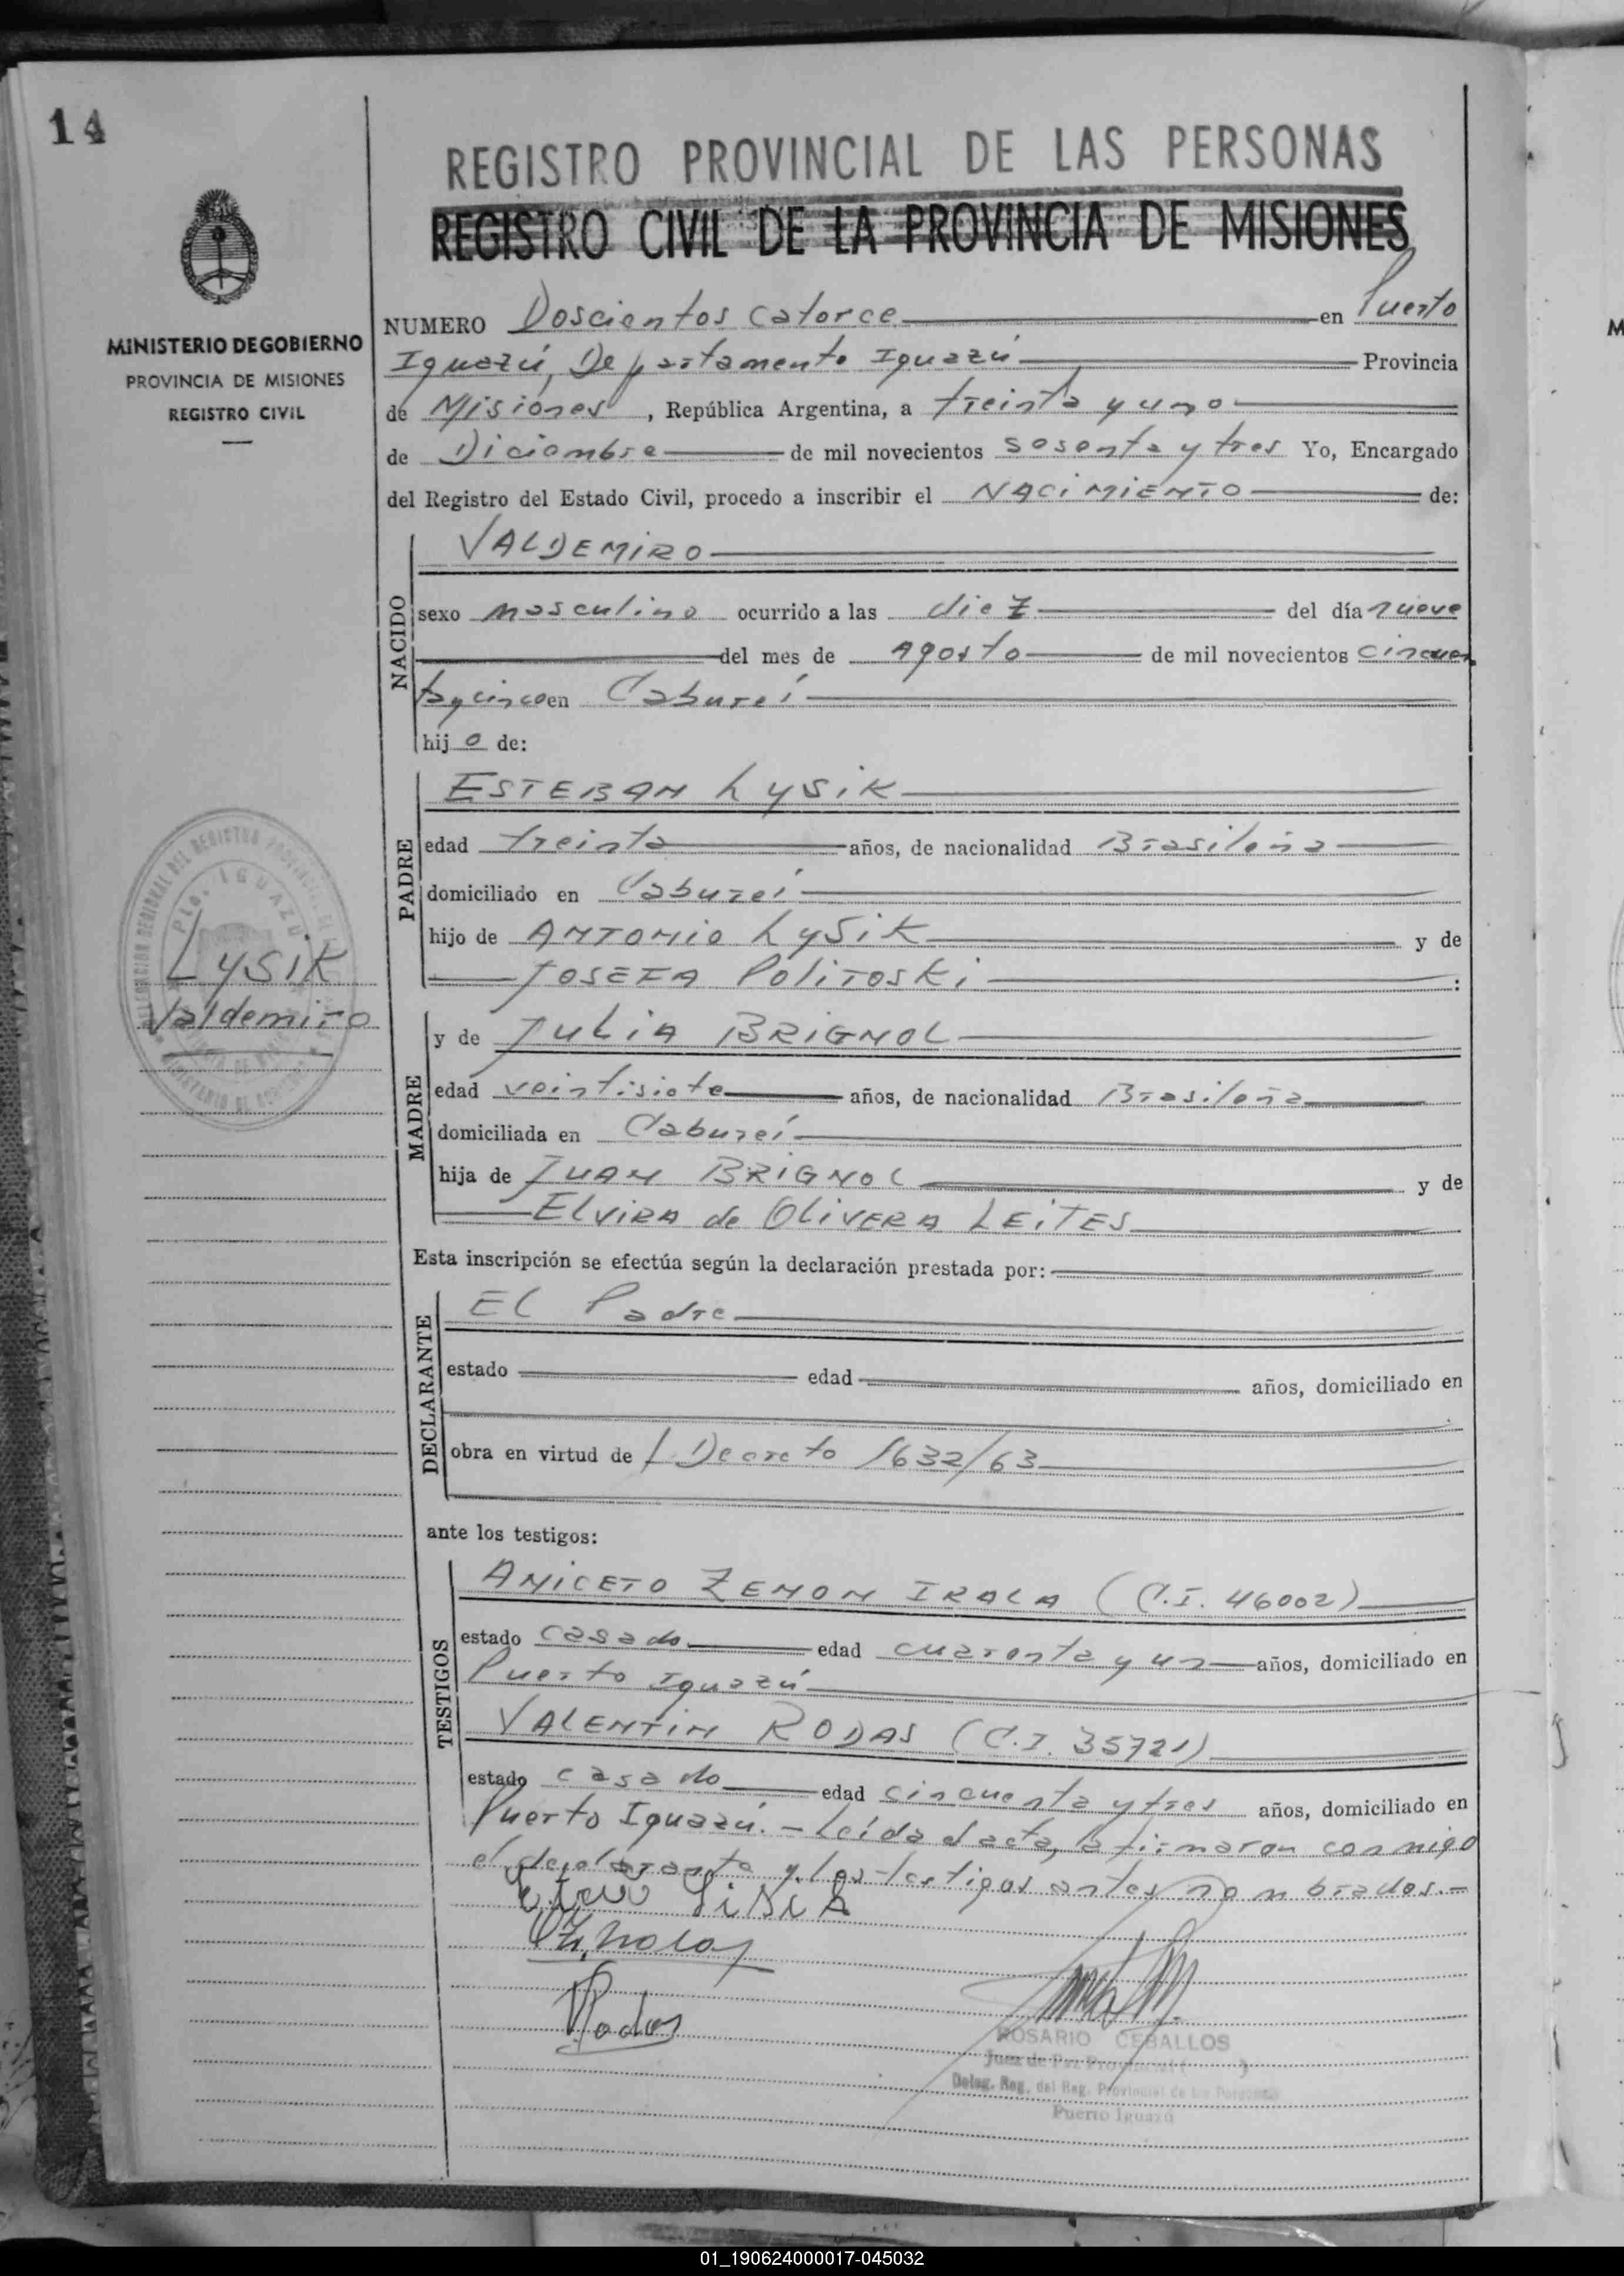 14
MINISTERIO DE GOBIERNO
PROVINCIA DE MISIONES
REGISTRO CIVIL
REGISTRO PROVINCIAL DE LAS PERSONAS
REGISTRO CIVIL DE LA PROVINCIA DE MISIONES
NUMERO Doscientos catorce en Puerto
Iguazú, Departamento Iguazú Provincia
de Misiones, República Argentina, a treinta y uno
de Diciembre de mil novecientos sesenta y tres Yo, Encargado
del Registro del Estado Civil, procedo a inscribir el NACIMIENTO de:
NACIDO
VALDEMIRO
sexo masculino ocurrido a las diez del día nueve
del mes de Agosto de mil novecientos cincuen
ta y cinco en Cabureí
hijo de:
PADRE
ESTEBAN LYSIK
edad treinta años, de nacionalidad Brasileña
domiciliado en Cabureí
hijo de ANTONIO LYSIK y de
JOSEFA POLITOSKI :
Lysik
Valdemiro
MADRE
y de JULIA BRIGNOL
edad veintisiete años, de nacionalidad Brasileña
domiciliada en Cabureí
hija de JUAN BRIGNOL y de
ELVIRA de OLIVERA LEITES
Esta inscripción se efectúa según la declaración prestada por:
DECLARANTE
EL Padre
estado edad años, domiciliado en
obra en virtud de / Decreto 1632/63
ante los testigos:
TESTIGOS
ANICETO ZENON IRALA (C.I. 46002)
estado casado edad cuarenta y un años, domiciliado en
Puerto Iguazú
VALENTIN RODAS (C.I. 35721)
estado casado edad cincuenta y tres años, domiciliado en
Puerto Iguazú.- Leída el acta, la firmaron conmigo
el declarante y los testigos antes nombrados.-
Rodas
ROSARIO CEBALLOS
Juez de Paz Provincial
Deleg. Reg. del Reg. Provincial de las Personas
Puerto Iguazú
01_190624000017-045032